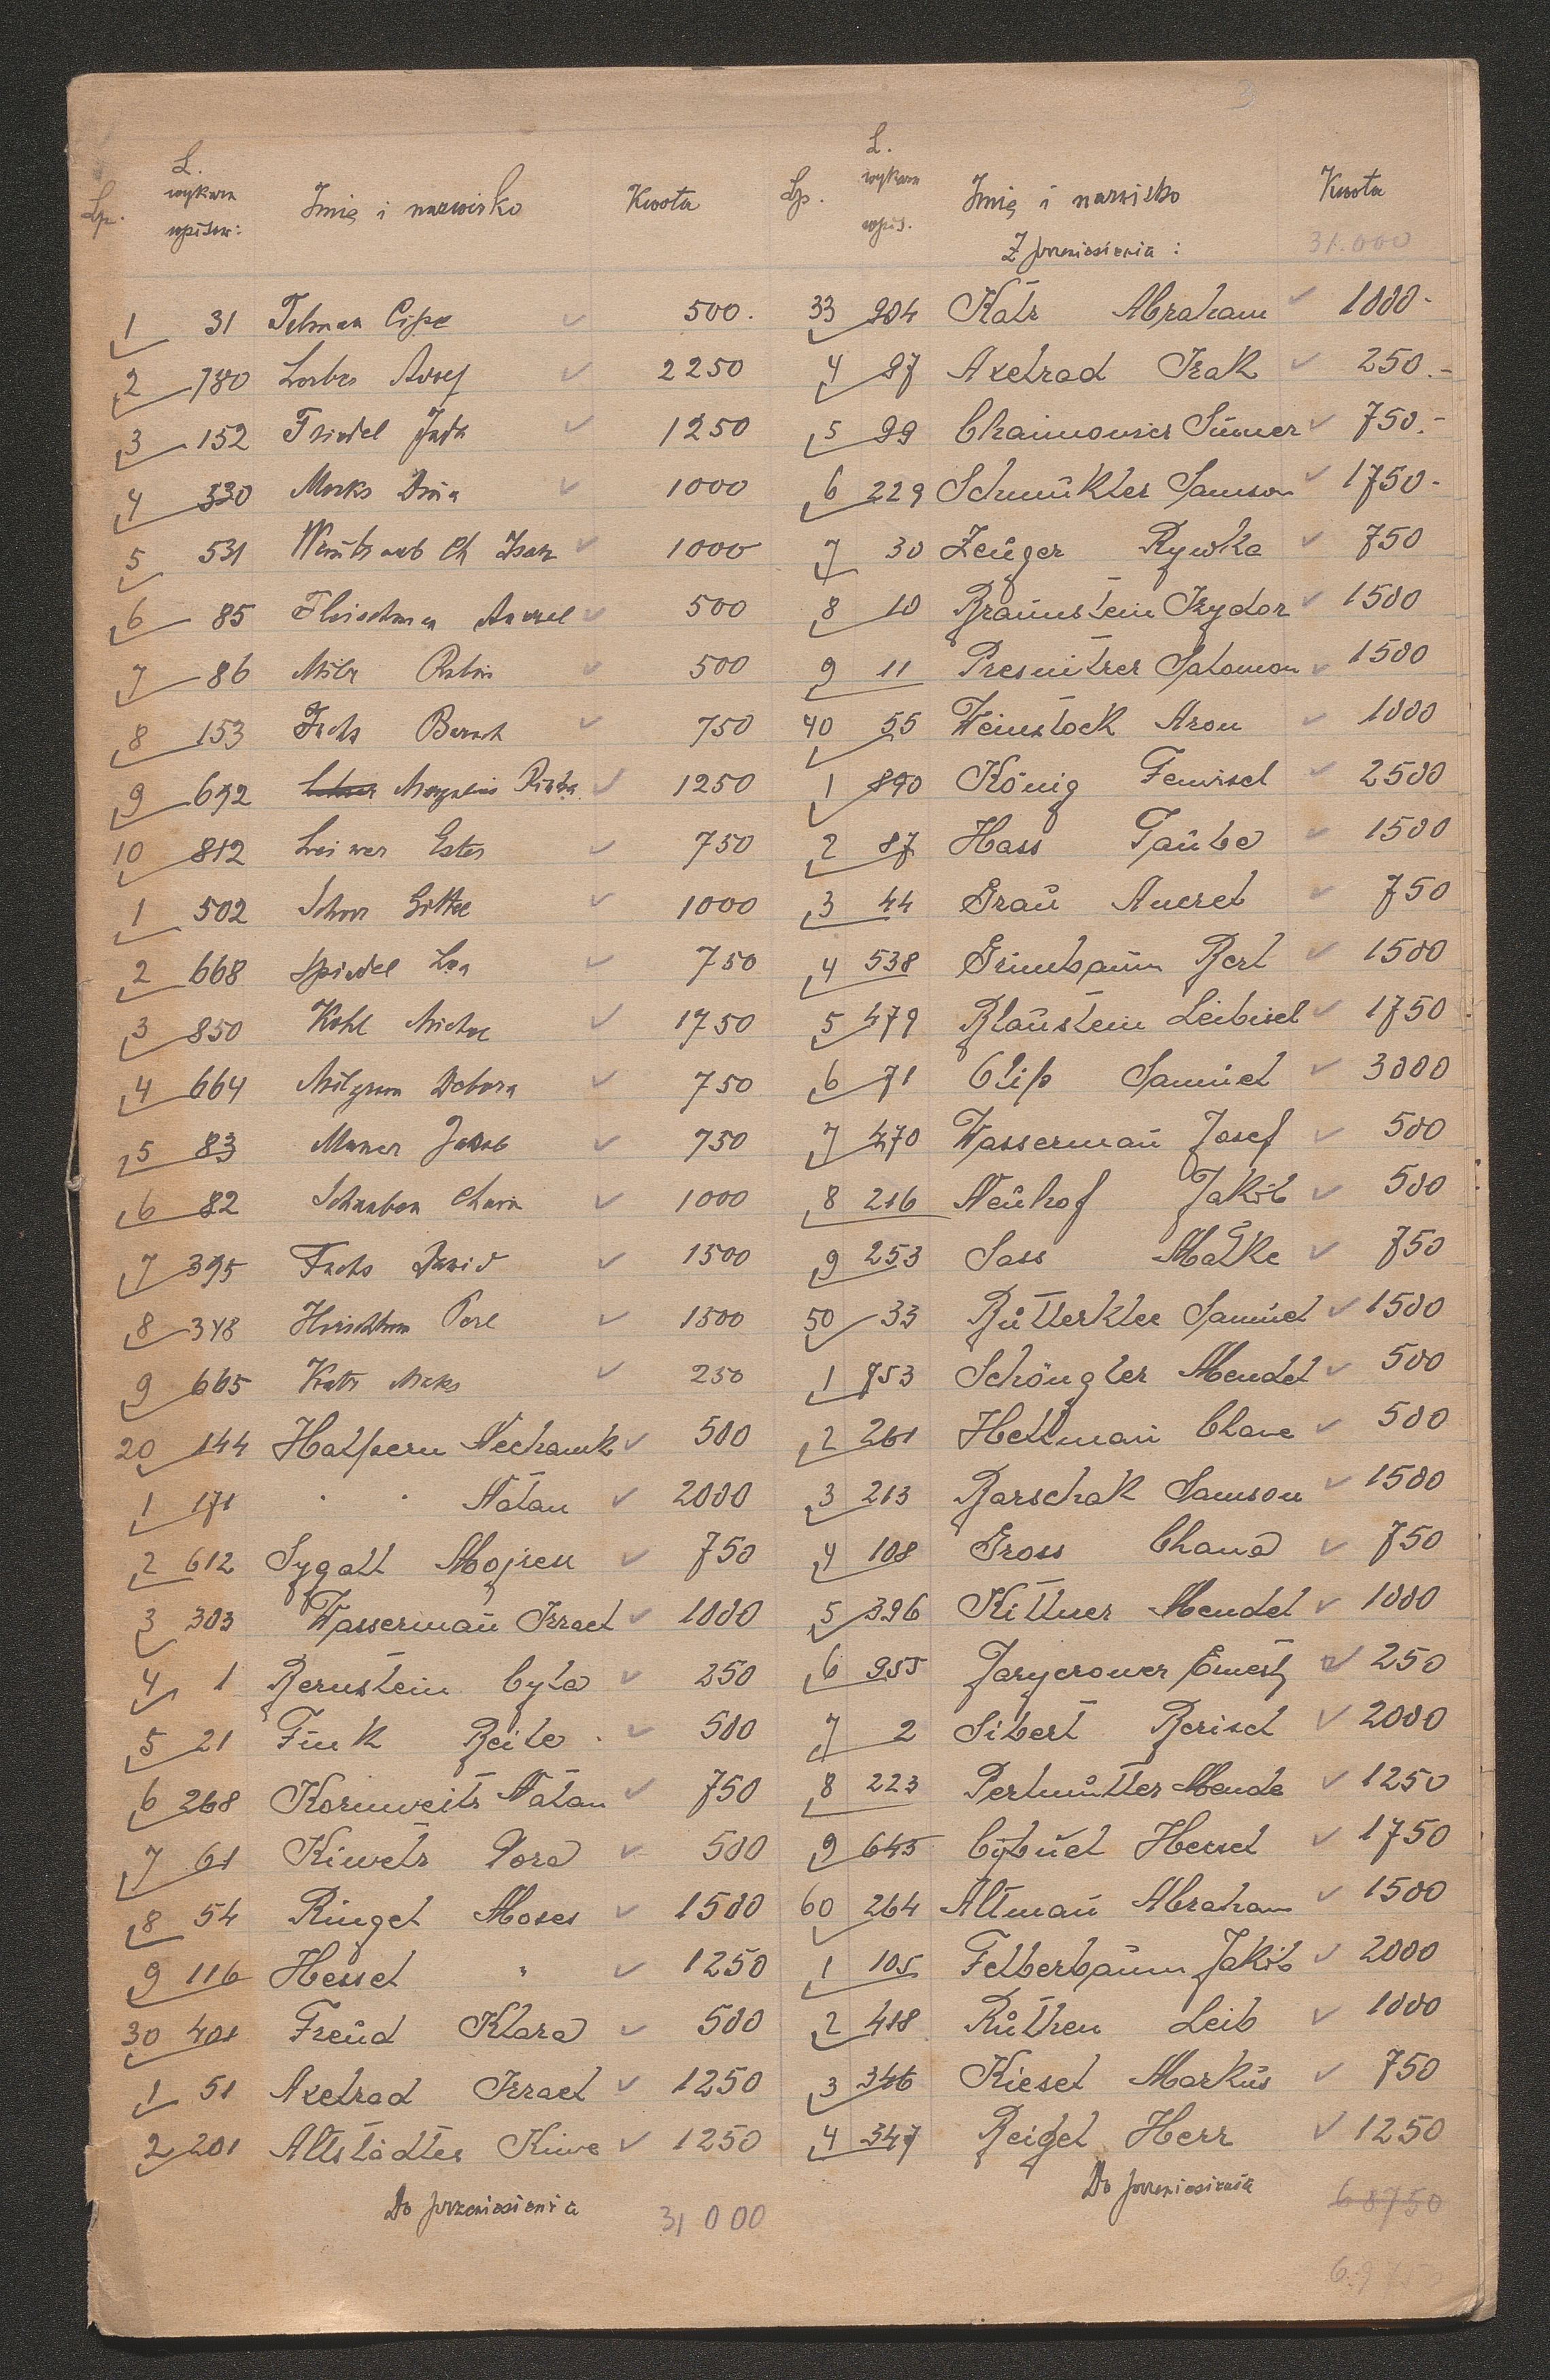 3
Lp. L. wykazu wpisow: Imię i nazwisko Kwota
1 31 Telman Cipe 500.
2 780 Lorber Josef 2250
3 152 Friedel Juda 1250
4 330 Marks Dina 1000
5 531 Weintraub Ch Izak 1000
6 85 Fleischman 500
7 86 500
8 153 Fuchs Baruch 750
9 692 1250
10 812 Ester 750
1 502 Schorr Gittel 1000
2 668 Spindel Lea 750
3 850 Kohl 1750
4 664 Milgrom Debora 750
5 83 Jakob 750
6 82 1000
7 395 Fuchs Dawid 1500
8 348 Perl 1500
9 665 Katz Maks 250
20 144 Halpern Nechamk 500
1 171 " " Natan 2000
2 612 Sygall Mojżesz 750
3 303 Wasserman Izrael 1000
4 1 Bernstein Cyla 250
5 21 Fink Beile 500
6 268 Kornweitz Natan 750
7 61 Kiwetz Dora 500
8 54 Ringel Moses 1500
9 116 Hessel " 1250
30 401 Freud Klara 500
1 51 Axelrad Izrael 1250
2 201 Altstädter Kiwe 1250
Do przeniesienia 31000
Lp. L. wykazu wpis. Imię i nazwisko Kwota
Z przeniesienia: 31.000
33 904 Katz Abraham 1000-
4 97 Axelrad Izak 250.-
5 99 Chaimowicz Sumer 750.-
6 229 Schmukler Samson 1750-
7 30 Zeuger Rywka 750
8 10 Braunstein Izydor 1500
9 11 Presnitzer Salomon 1500
40 55 Weinstock Aron 1000
1 890 König Feiwisel 2500
2 87 Hass Taube 1500
3 44 Grau Anczel 750
4 538 Grünbaum Berl 1500
5 479 Blaustein Leibisch 1750
6 71 Clip Samuel 3000
7 470 Wasserman Josef 500
8 216 Neuhof Jakób 500
9 253 Sass Małke 750
50 33 Butterklee Samuel 1500
1 753 Schöngler Mendel 500
2 261 Hellman Chane 500
3 213 Barschak Samson 1500
4 108 Gross Chana 750
5 396 Kittner Mendel 1000
6 955 Jaryczower Ernest 250
7 2 Sibert Berisch 2000
8 223 Perlmutter Mende 1250
9 645 Cybuch Hersch 1750
60 264 Altman Abraham 1500
1 105 Felberbaum Jakób 2000
2 418 Ruthen Leib 1000
3 346 Kiesel Markus 750
4 347 Beigel Herz 1250
Do przeniesienia 68750